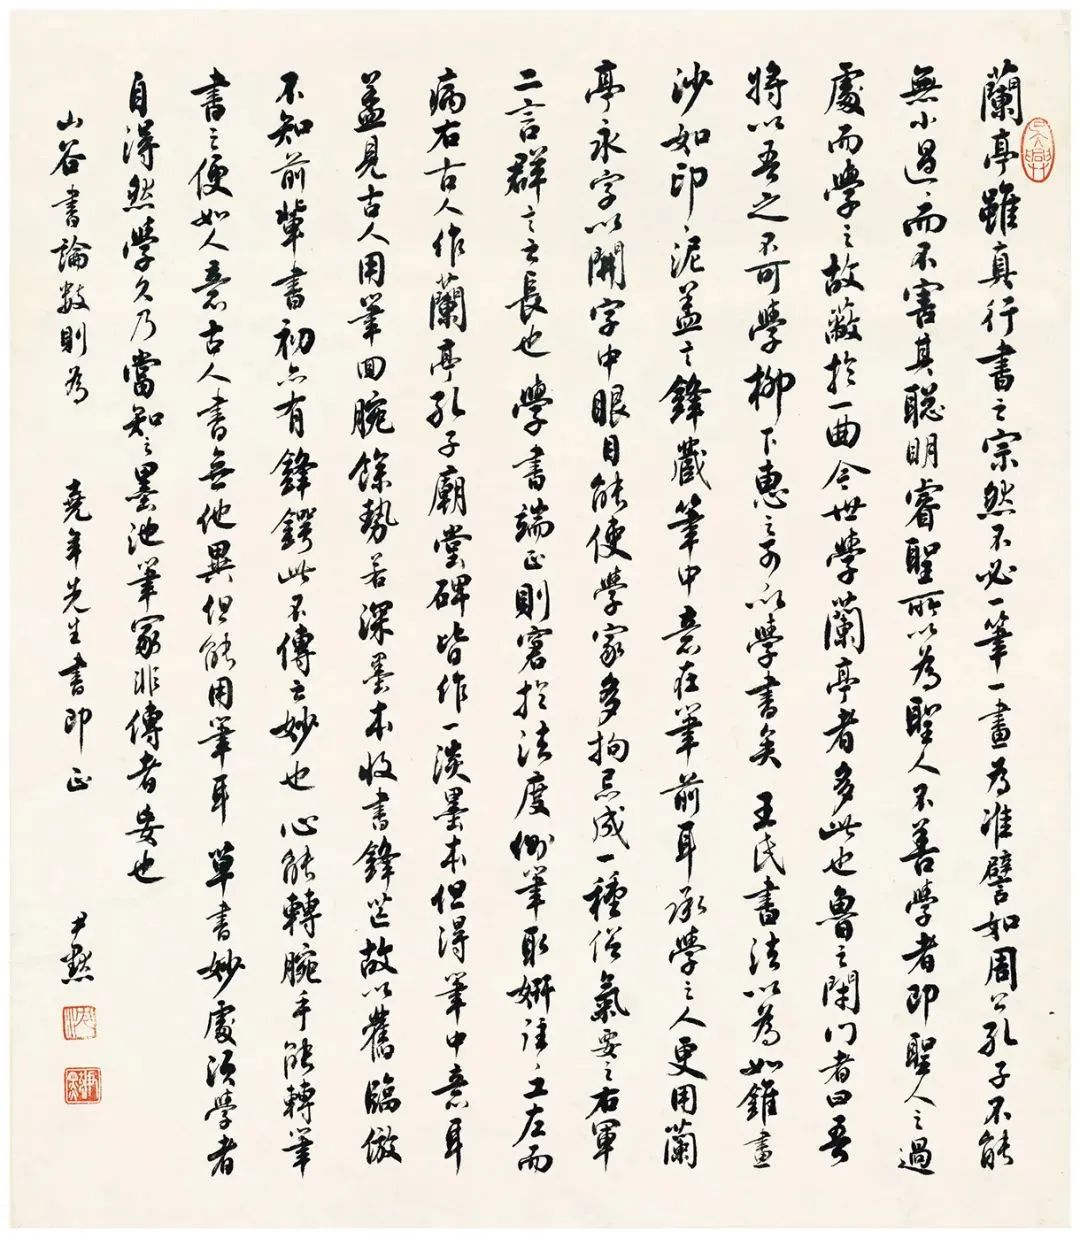 蘭亭雖真行書之宗然不必一筆一畫為准譬如周公孔子不能
無小過過而不害其聰明睿聖所以為聖人不善學者即聖人之過
處而學之故蔽於一曲今世學蘭亭者多此也魯之閉門者曰吾
將以吾之不可學柳下惠之可以學書矣 王氏書法以為如錐畫
沙如印印泥蓋言鋒藏筆中意在筆前耳承學之人更用蘭
亭永字以開字中眼目能使學家多拘忌成一種俗氣要之右軍
二言群言之長也 學書端正則窘於法度側筆取妍往往工左而
病右古人作蘭亭孔子廟堂碑皆作一淡墨本但得筆中意耳
蓋見古人用筆回腕餘勢若深墨本收書鋒芒故以舊臨倣
不知前輩書初亦有鋒鍔此不傳之妙也 心能轉腕手能轉筆
書之便如人意古人書無他異但能用筆耳 草書妙處須學者
自得然學久乃當知之墨池筆冢非傳者妄也
山谷書論數則為
堯年先生書即正
尹默